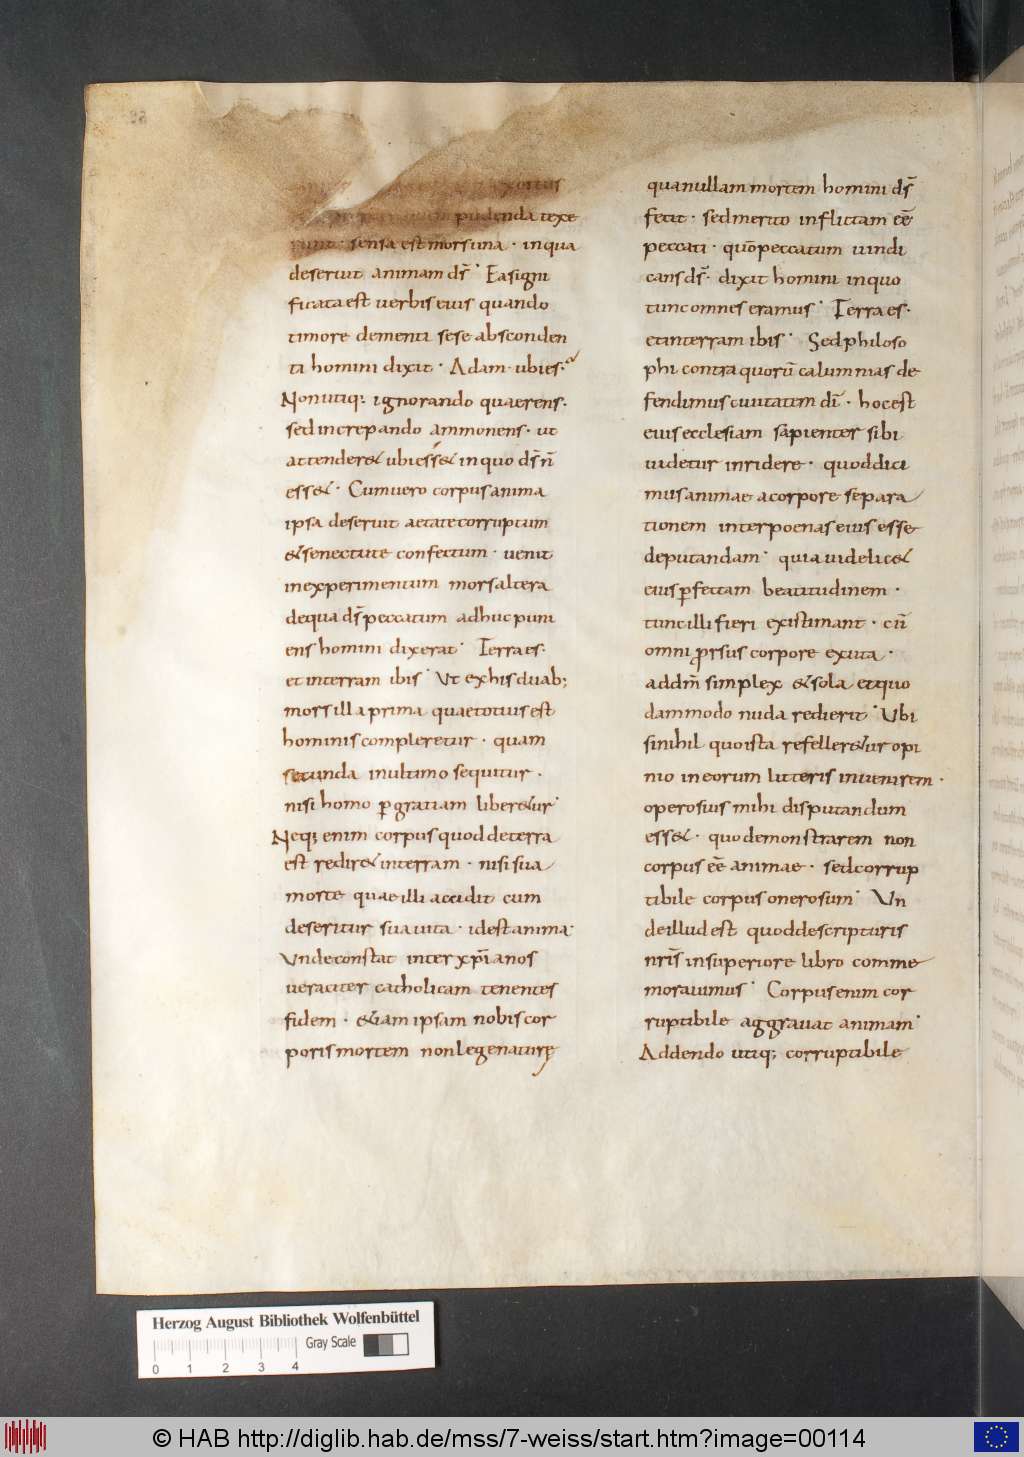 xortus
pudenda texe
runt · sensa est mors una · in qua
deseruit animam ds̄ · Ea signi
ficata est uerbis eius quando
timore dementi sese absconden
ti homini dixit · Adam · ubi es ·
Non utiq; ignorando quaerens ·
sed increpando ammonens · ut
attender& ubi ess& in quo ds̄ n̄
ess& · Cum uero corpus anima
ipsa deseruit aetate corruptum
& senectute confectum · uenit
in experimentum mors altera
de qua ds̄ peccatum adhuc puni
ens homini dixerat · Terra es ·
et in terram ibis · Ut ex his duab;
mors illa prima quae totius est
hominis compleretur · quam
secunda in ultimo sequitur ·
nisi homo ꝑ gratiam liber&ur ·
Neq; enim corpus quod de terra
est redir& in terram · nisi sua
morte quae illi accidit cum
deseritur sua uita · id est anima ·
Unde constat inter xp̄ianos
ueraciter catholicam tenentes
fidem · &iam ipsam nobis cor
poris mortem non lege naturę
qua nullam mortem homini ds̄
fecit · sed merito inflictam eē
peccati · quō peccatum uindi
cans ds̄ · dixit homini in quo
tunc omnes eramus · Terra es ·
et in terram ibis · Sed philoso
phi contra quorū calumnias de
fendimus ciuitatem dī · hoc est
eius ecclesiam sapienter sibi
uidetur inridere · quod dici
mus animae a corpore separa
tionem inter poenas eius esse
deputandam · quia uidelic&
eius ꝑfectam beatitudinem ·
tunc illi fieri existimant · cū
omni ꝓrsus corpore exuta ·
ad dm̄ simplex & sola et quo
dammodo nuda redierit · Ubi
si nihil quo ista refeller&ur opi
nio in eorum litteris inuenirem ·
operosius mihi disputandum
ess& · quo demonstrarem non
corpus eē animae · sed corrup
tibile corpus onerosum · Un
de illud est quod de scripturis
nr̄is in superiore libro comme
morauimus · Corpus enim cor
ruptibile aggrauat animam ·
Addendo utiq; corruptibile
Herzog August Bibliothek Wolfenbüttel
Gray Scale
0 1 2 3 4
© HAB http://diglib.hab.de/mss/7-weiss/start.htm?image=00114